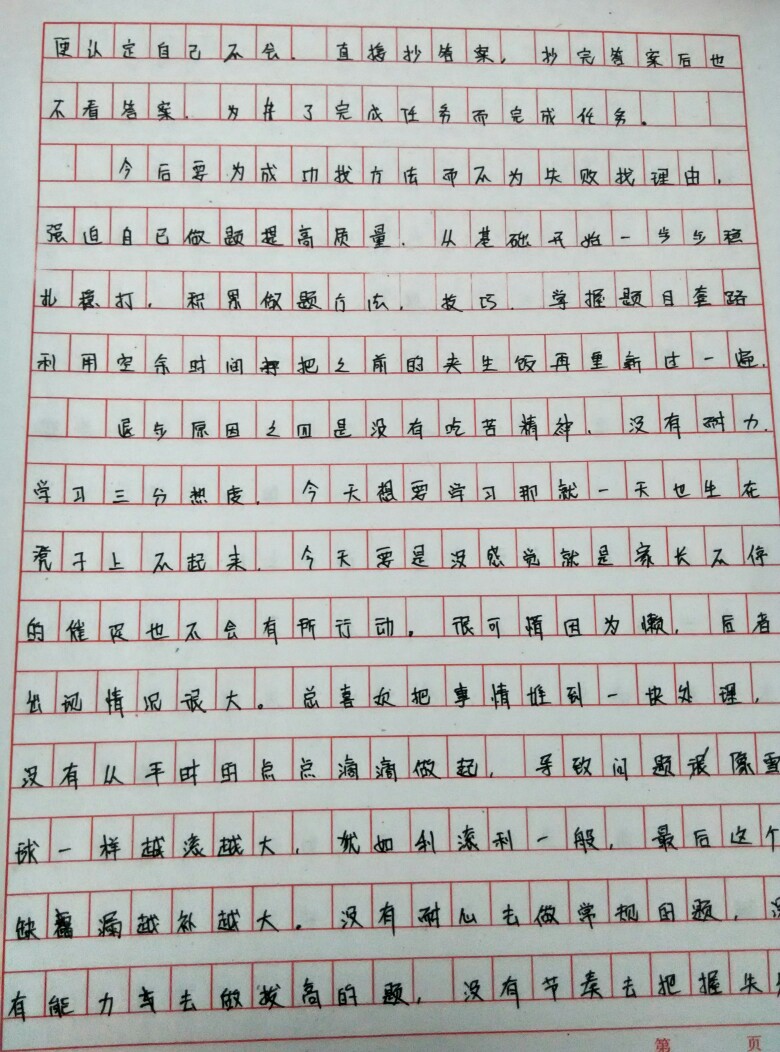 便认定自己不会。直接抄答案,抄完答案后也
不看答案。为了完成任务而完成任务。
今后要为成功找方法而不为失败找理由,
强迫自己做题提高质量。从基础开始一步步稳
扎稳打,积累做题方法,技巧。掌握题目套路
利用空余时间把之前的夹生饭再重新过一遍。
退步原因之四是没有吃苦精神、没有耐力。
学习三分热度。今天想要学习那就一天也坐在
凳子上不起来。今天要是没感觉就是家长不停
的催促也不会有所行动。很可惜因为懒,后者
出现情况很大。总喜欢把事情堆到一块处理,
没有从平时的点点滴滴做起,导致问题很像雪
球一样越滚越大,就如利滚利一般,最后这个
缺漏越补越大。没有耐心去做常规的题,没
有能力去做拔高的题,没有节奏去把握失
第 页